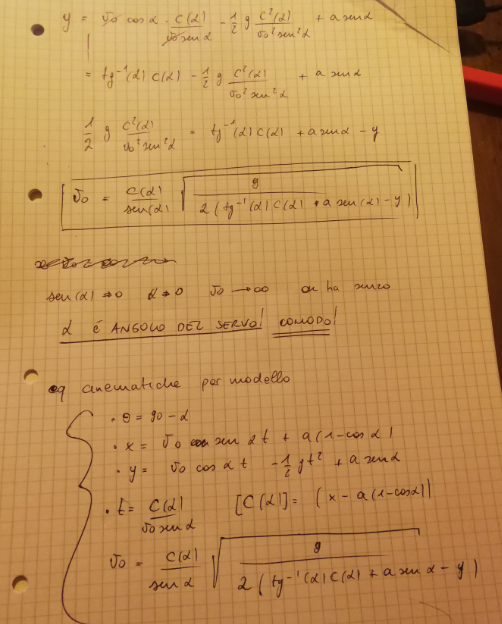 y = v₀ cos α · C(α)/(v₀ sen α) - 1/2 g C²(α)/(v₀² sen² α) + a sen α
= tg⁻¹(α) C(α) - 1/2 g C²(α)/(v₀² sen² α) + a sen α
1/2 g C²(α)/(v₀² sen² α) = tg⁻¹(α) C(α) + a sen α - y
v₀ = C(α)/sen(α) √(g/(2(tg⁻¹(α) C(α) + a sen(α) - y)))
sen(α) → 0 α → 0 v₀ → ∞ ha senso
α È ANGOLO DEL SERVO! COMODO!
eq cinematiche per modello
• θ = 90 - α
• x = v₀ sen α t + a(1-cos α)
• y = v₀ cos α t - 1/2 g t² + a sen α
• t = C(α)/(v₀ sen α) [C(α)] = (x - a(1-cos α))
v₀ = C(α)/sen α √(g/(2(tg⁻¹(α) C(α) + a sen α - y)))